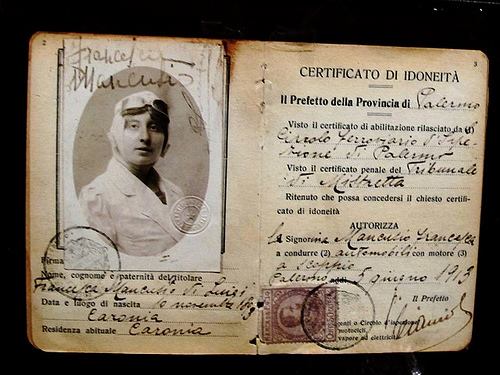 2
Francesca
Mancusio
Firma
Nome, cognome e paternità del titolare
Francesca Mancusio di Luigi
Data e luogo di nascita 10 novembre
Caronia
Residenza abituale Caronia
3
CERTIFICATO DI IDONEITÀ
Il Prefetto della Provincia di Palermo
Visto il certificato di abilitazione rilasciato da (1)
Circolo Ferroviario d'Ispe-
zione di Palermo
Visto il certificato penale del Tribunale
di Mistretta
Ritenuto che possa concedersi il chiesto certifi-
cato di idoneità
AUTORIZZA
la Signorina Mancusio Francesca
a condurre (2) automobili con motore (3)
a scoppio
Palermo addì 5 giugno 1913
Il Prefetto
o Circolo d'ispezione
motocicli
vapore ed elettricità